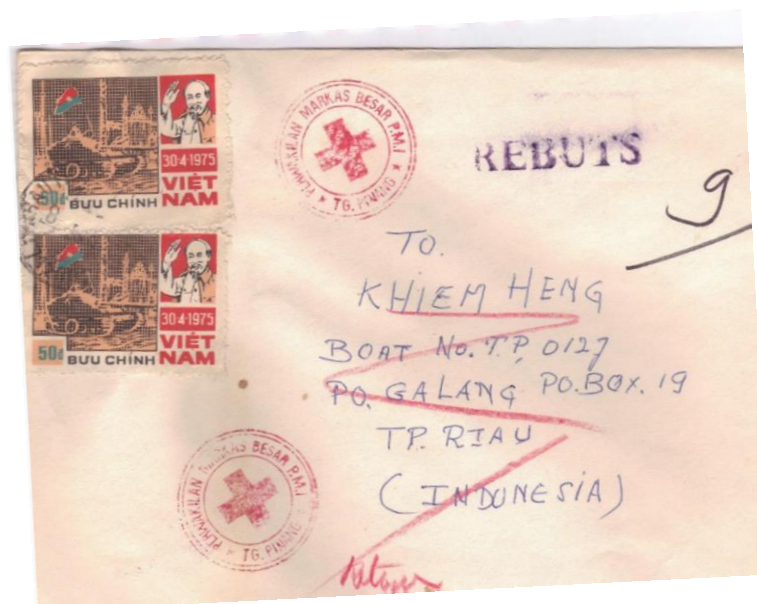 30·4·1975
VIỆT
NAM
50đ BƯU CHÍNH
30·4·1975
VIỆT
NAM
50đ BƯU CHÍNH
PERWAKILAN MARKAS BESAR P.M.I
* TG. PINANG *
REBUTS
9
TO.
KHIEM HENG
BOAT NO. T.P. 0127
PO. GALANG PO.BOX. 19
TP. RIAU
(INDONESIA)
PERWAKILAN MARKAS BESAR P.M.I
* TG. PINANG *